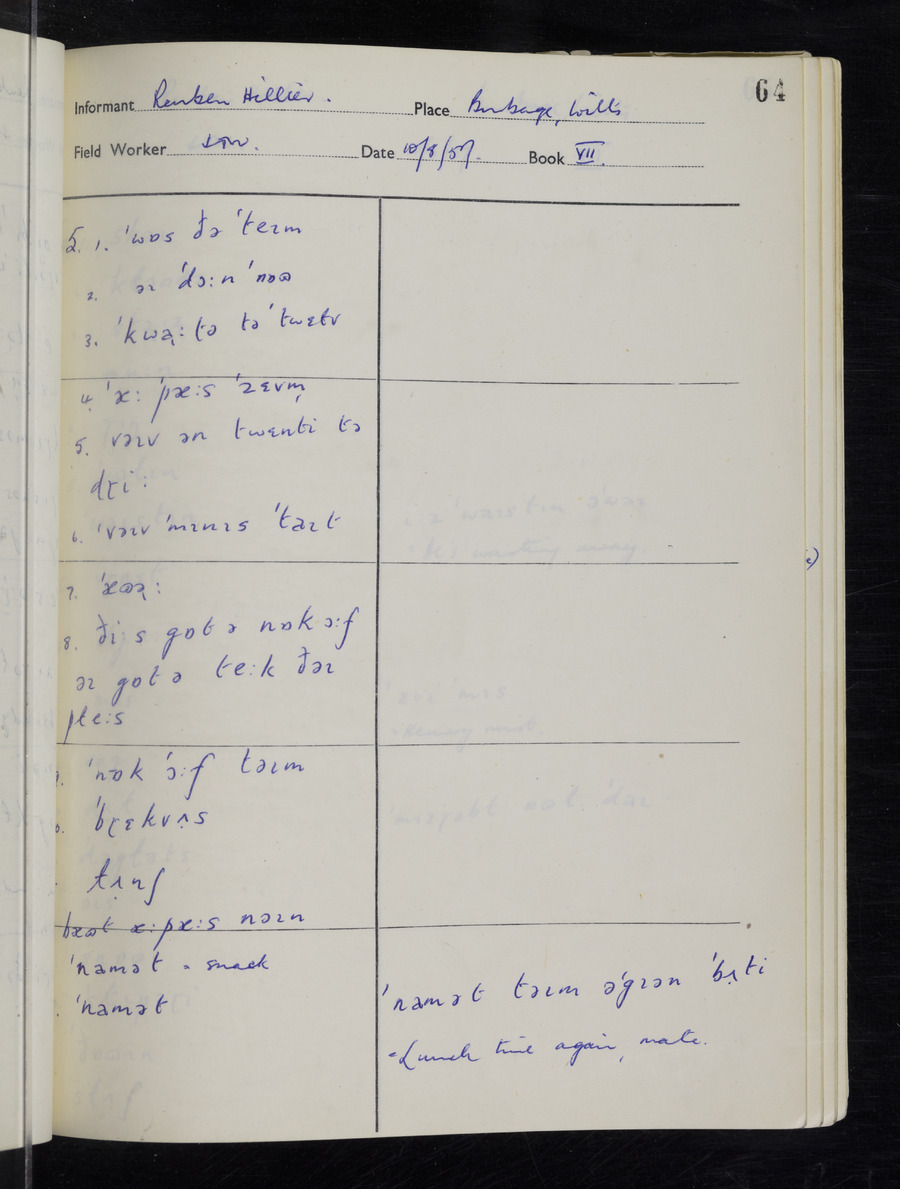 64
Informant Reuben Hillier. Place Burbage, Wilts
Field Worker Date 10/8/57. Book VII.
5. 1. ˈwɒs ðə ˈtɛɪm
2. əɪ ˈdɔːn ˈnɒʊ
3. ˈkwɑ̨ːtə tə ˈtwɛlv
4. ˈæː ˈpæːs ˈzɛvm̩
5. vəɪv ən twɛnti tə
dɽiː
6. ˈvəɪv ˈmɪnɪs ˈtaɪt
7.
8. ðiːs gɒt ə nɒk ɔːf
əɪ gɒt ə teːk ðəɪ
pleːs
ˈnɒk ˈɔːf təɪm
ˈbɽɛkvʌs
tʌnʃ
bæʊt æːpæːs nəɪn
ˈnamət = snack
ˈnamət
ˈnamət təɪm əˈgɪən ˈbʌ̨ti
=Lunch time again, mate.